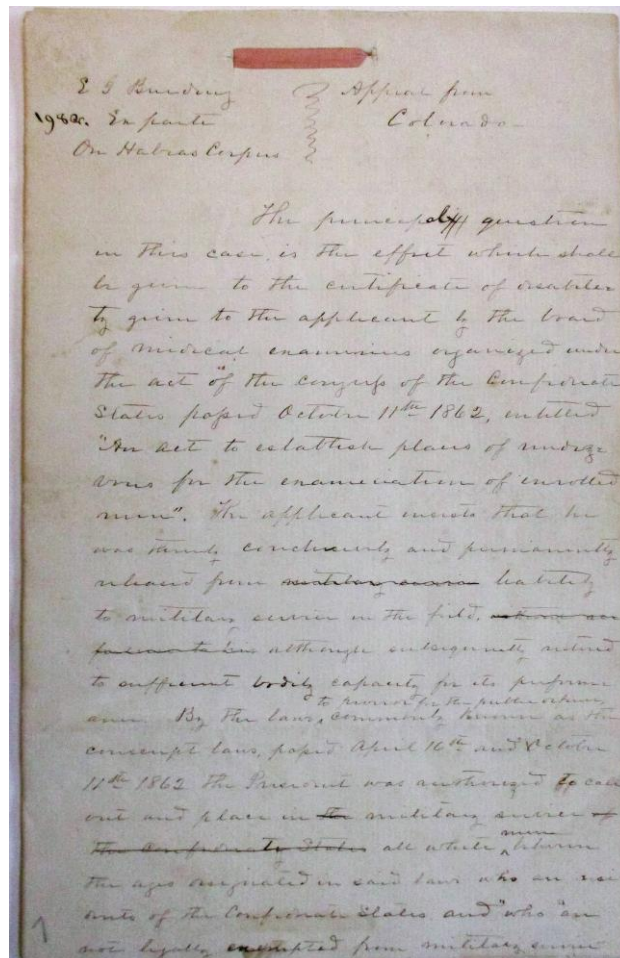 E G Bunding
Appeal from
1982. Ex parte
Colorado
On Habeas Corpus
The principal question
in this case, is the effect which shall
be given to the certificate of disabili
ty given to the applicant by the board
of medical examiners organized under
the act "of the congress of the Confederate
States passed October 11th 1862, entitled
"An act to establish places of rendez
vous for the examination of enrolled
men". The applicant insists that he
was thereby conclusively and permanently
released from military liability
to military service in the field,
although subsequently restored
to sufficient bodily capacity for its perform
ance. By the laws, commonly known as the
to provide for the public defence,
conscript laws, passed April 16th and October
11th 1862 the President was authorized to call
out and place in the military service of
the Confederate States all white men between
the ages designated in said laws who are resi
dents of the Confederate States and "who "are
not legally exempted from military service